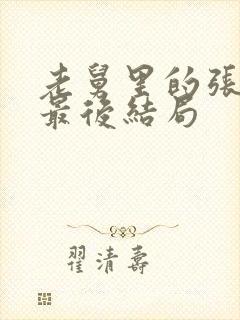 老舅里的張
最後結局
翟清壽